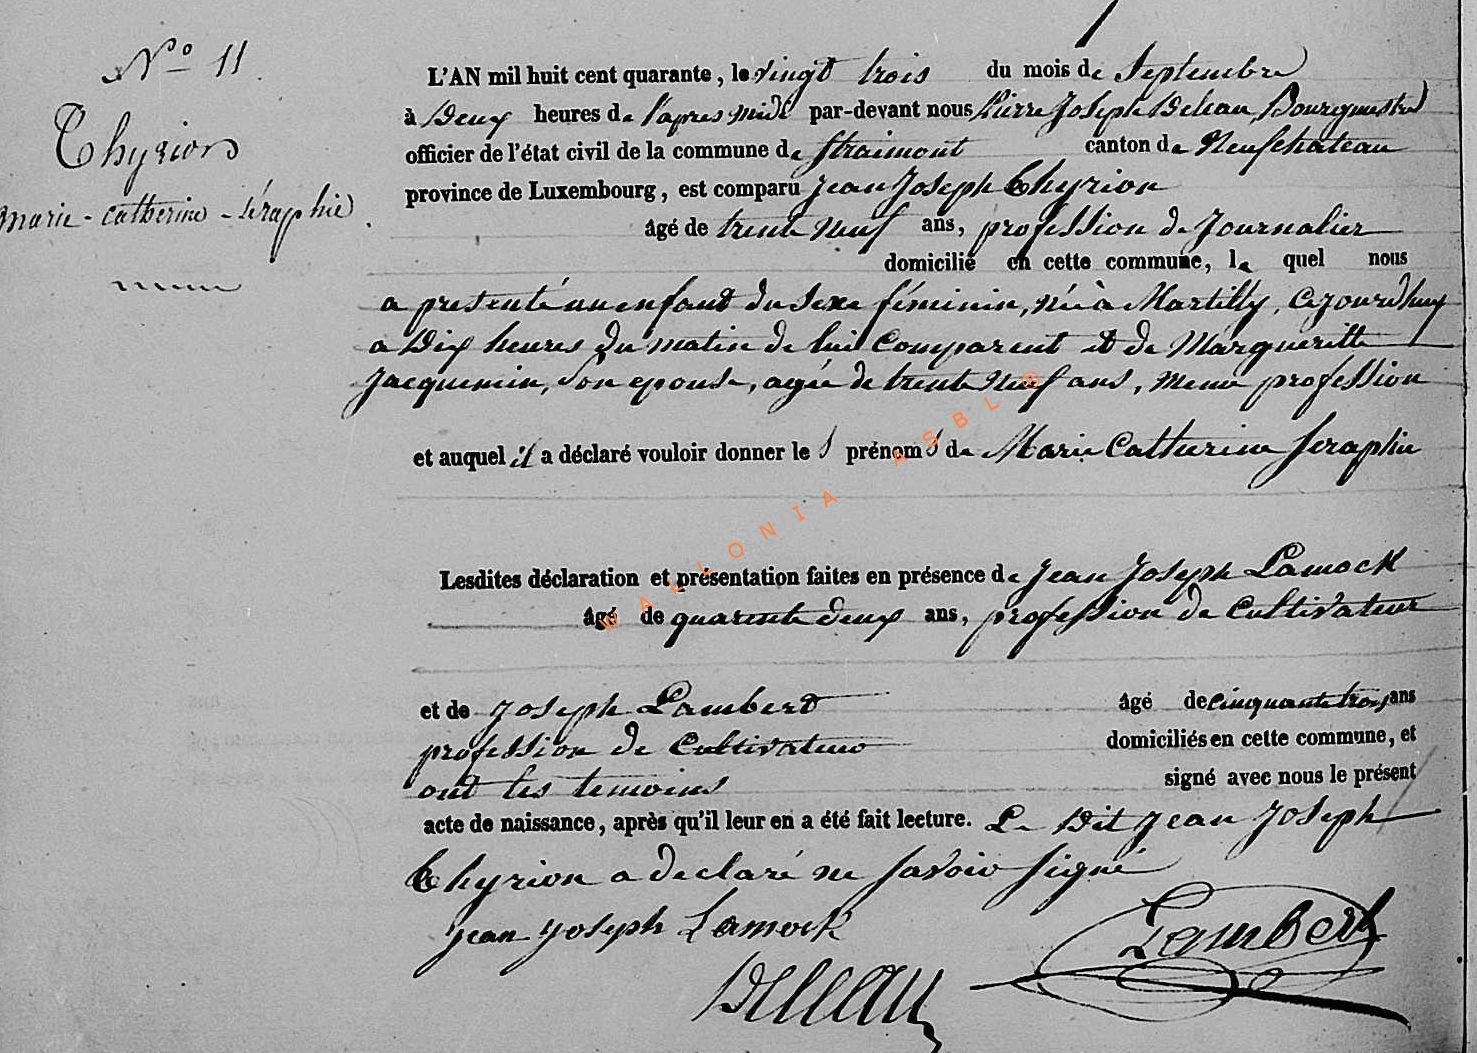 N° 11.
Thyrion
Marie-Catherine-Séraphie.
L'AN mil huit cent quarante, le vingt trois du mois de Septembre
à Deux heures de l'apres midi par-devant nous Pierre Joseph Deleau, Bourgmestre
officier de l'état civil de la commune de Straimont canton de Neufchateau
province de Luxembourg, est comparu Jean Joseph Thyrion
âgé de trente neuf ans, profession de Journalier
domicilié en cette commune, le quel nous
a presenté un enfant du sexe féminin, née à Martilly, cejourdhuy
a Dix heures du matin de lui Comparent et de Margueritte
Jacquemin, son epouse, agée de trente neuf ans, meme profession
et auquel il a déclaré vouloir donner le s prénom s de Marie Catherine Seraphie
Lesdites déclaration et présentation faites en présence de Jean Joseph Lamock
âgé de quarente deux ans, profession de Cultivateur
et de Joseph Lambert âgé de cinquante trois ans
profession de Cultivateur domiciliés en cette commune, et
ont les temoins signé avec nous le présent
acte de naissance, après qu'il leur en a été fait lecture. Le Dit Jean Joseph
Thyrion a declaré ne savoir signé
Jean Joseph Lamock
Lambert
Deleau
WALLONIA ASBL ©